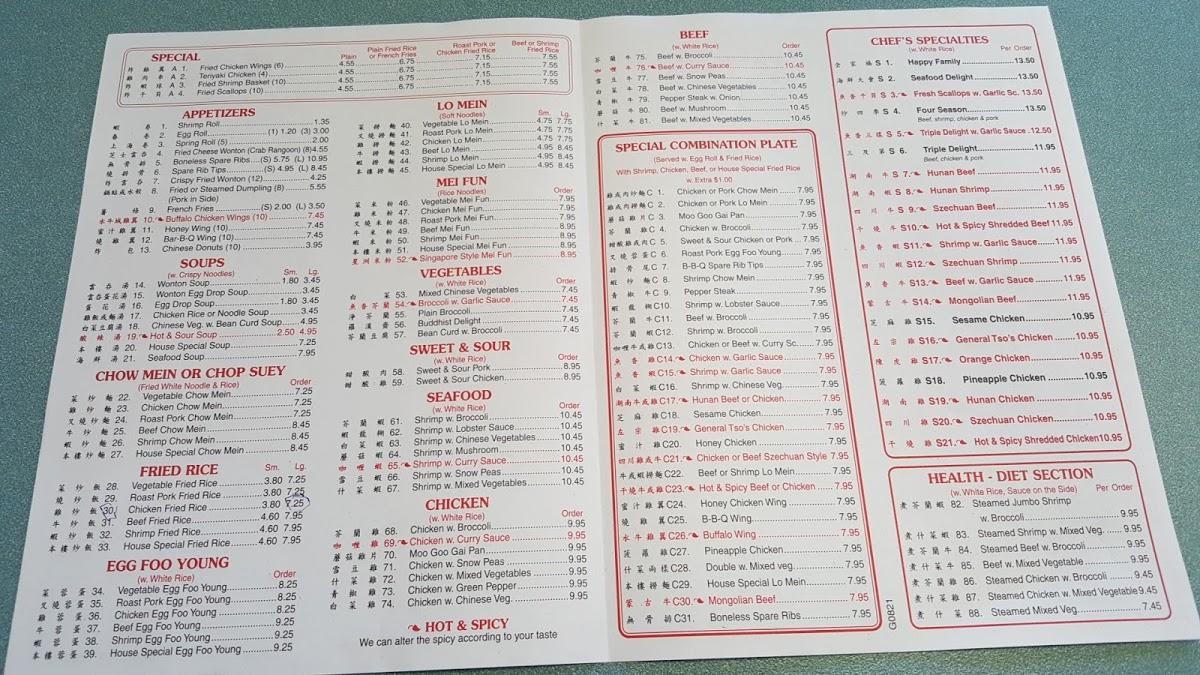 SPECIAL
Plain
Plain Fried Rice or French Fries
Roast Pork or Chicken Fried Rice
Beef or Shrimp Fried Rice
炸雞翼 A 1. Fried Chicken Wings (6) 4.55 6.75 7.15 7.55
雞肉串 A 2. Teriyaki Chicken (4) 4.55 6.75 7.15 7.55
炸蝦球 A 3. Fried Shrimp Basket (10) 4.55 6.75 7.15 7.55
炸干貝 A 4. Fried Scallops (10) 4.55 6.75 7.15 7.55
APPETIZERS
蝦卷 1. Shrimp Roll 1.35
春卷 2. Egg Roll (1) 1.20 (3) 3.00
上海卷 3. Spring Roll (5) 2.00
芝士雲吞 4. Fried Cheese Wonton (Crab Rangoon) (8) 4.55
無骨排 5. Boneless Spare Ribs (S) 5.75 (L) 10.95
燒排骨 6. Spare Rib Tips (S) 4.95 (L) 8.45
炸雲吞 7. Crispy Fried Wonton (12) 4.25
鍋貼或水餃 8. Fried or Steamed Dumpling (8) 5.55
(Pork in Side)
薯條 9. French Fries (S) 2.00 (L) 3.50
水牛城雞翼 10. Buffalo Chicken Wings (10) 7.45
蜜汁雞翼 11. Honey Wing (10) 7.45
燒雞翼 12. Bar-B-Q Wing (10) 7.45
炸包 13. Chinese Donuts (10) 3.95
SOUPS
(w. Crispy Noodles) Sm. Lg.
雲吞湯 14. Wonton Soup 1.80 3.45
雲吞蛋花湯 15. Wonton Egg Drop Soup 3.45
蛋花湯 16. Egg Drop Soup 1.80 3.45
雞飯或麵湯 17. Chicken Rice or Noodle Soup 3.45
白菜豆腐湯 18. Chinese Veg. w. Bean Curd Soup 4.95
酸辣湯 19. Hot & Sour Soup 2.50 4.95
本樓湯 20. House Special Soup 7.25
海鮮湯 21. Seafood Soup 7.95
CHOW MEIN OR CHOP SUEY
(Fried White Noodle & Rice) Order
菜炒麵 22. Vegetable Chow Mein 7.25
雞炒麵 23. Chicken Chow Mein 7.25
叉燒炒麵 24. Roast Pork Chow Mein 7.25
牛炒麵 25. Beef Chow Mein 8.45
蝦炒麵 26. Shrimp Chow Mein 8.45
本樓炒麵 27. House Special Chow Mein 8.45
FRIED RICE Sm. Lg.
菜炒飯 28. Vegetable Fried Rice 3.80 7.25
燒炒飯 29. Roast Pork Fried Rice 3.80 7.25
雞炒飯 30. Chicken Fried Rice 3.80 7.25
牛炒飯 31. Beef Fried Rice 4.60 7.95
蝦炒飯 32. Shrimp Fried Rice 4.60 7.95
本樓炒飯 33. House Special Fried Rice 4.60 7.95
EGG FOO YOUNG
(w. White Rice) Order
菜蓉蛋 34. Vegetable Egg Foo Young 8.25
叉燒蓉蛋 35. Roast Pork Egg Foo Young 8.25
雞蓉蛋 36. Chicken Egg Foo Young 8.25
牛蓉蛋 37. Beef Egg Foo Young 9.25
蝦蓉蛋 38. Shrimp Egg Foo Young 9.25
本樓蓉蛋 39. House Special Egg Foo Young 9.25
LO MEIN
(Soft Noodles) Sm. Lg.
菜撈麵 40. Vegetable Lo Mein 4.75 7.75
叉燒撈麵 41. Roast Pork Lo Mein 4.75 7.75
雞撈麵 42. Chicken Lo Mein 4.75 7.75
牛撈麵 43. Beef Lo Mein 4.90 8.45
蝦撈麵 44. Shrimp Lo Mein 4.90 8.45
本樓撈麵 45. House Special Lo Mein 4.90 8.45
MEI FUN
(Rice Noodles) Order
菜米粉 46. Vegetable Mei Fun 7.95
雞米粉 47. Chicken Mei Fun 7.95
叉燒米粉 48. Roast Pork Mei Fun 7.95
牛米粉 49. Beef Mei Fun 8.95
蝦米粉 50. Shrimp Mei Fun 8.95
本樓米粉 51. House Special Mei Fun 8.95
星洲米粉 52. Singapore Style Mei Fun 8.95
VEGETABLES
(w. White Rice) Order
白菜 53. Mixed Chinese Vegetables 7.45
魚香芥蘭 54. Broccoli w. Garlic Sauce 7.45
淨芥蘭 55. Plain Broccoli 7.45
羅漢齋 56. Buddhist Delight 7.45
芥蘭豆腐 57. Bean Curd w. Broccoli 7.45
SWEET & SOUR
(w. White Rice) Order
甜酸肉 58. Sweet & Sour Pork 8.95
甜酸雞 59. Sweet & Sour Chicken 8.95
SEAFOOD
(w. White Rice) Order
芥蘭蝦 61. Shrimp w. Broccoli 10.45
蝦龍糊 62. Shrimp w. Lobster Sauce 10.45
白菜蝦 63. Shrimp w. Chinese Vegetables 10.45
蘑菇蝦 64. Shrimp w. Mushroom 10.45
咖哩蝦 65. Shrimp w. Curry Sauce 10.45
雪豆蝦 66. Shrimp w. Snow Peas 10.45
什菜蝦 67. Shrimp w. Mixed Vegetables 10.45
CHICKEN
(w. White Rice) Order
芥蘭雞 68. Chicken w. Broccoli 9.95
咖哩雞 69. Chicken w. Curry Sauce 9.95
蘑菇雞片 70. Moo Goo Gai Pan 9.95
雪豆雞 71. Chicken w. Snow Peas 9.95
什菜雞 72. Chicken w. Mixed Vegetables 9.95
青椒雞 73. Chicken w. Green Pepper 9.95
白菜雞 74. Chicken w. Chinese Veg. 9.95
HOT & SPICY
We can alter the spicy according to your taste
BEEF
(w. White Rice) Order
芥蘭牛 75. Beef w. Broccoli 10.45
咖哩牛 76. Beef w. Curry Sauce 10.45
雪豆牛 77. Beef w. Snow Peas 10.45
白菜牛 78. Beef w. Chinese Vegetables 10.45
青椒牛 79. Pepper Steak w. Onion 10.45
蘑菇牛 80. Beef w. Mushroom 10.45
什菜牛 81. Beef w. Mixed Vegetables 10.45
SPECIAL COMBINATION PLATE
(Served w. Egg Roll & Fried Rice)
With Shrimp, Chicken, Beef, or House Special Fried Rice
w. Extra $1.00
雞或肉炒麵 C 1. Chicken or Pork Chow Mein 7.95
雞或肉撈麵 C 2. Chicken or Pork Lo Mein 7.95
蘑菇雞片 C 3. Moo Goo Gai Pan 7.95
芥蘭雞 C 4. Chicken w. Broccoli 7.95
甜酸雞或肉 C 5. Sweet & Sour Chicken or Pork 7.95
叉燒蓉蛋 C 6. Roast Pork Egg Foo Young 7.95
排骨尾 C 7. B-B-Q Spare Rib Tips 7.95
蝦炒麵 C 8. Shrimp Chow Mein 7.95
青椒牛 C 9. Pepper Steak 7.95
蝦龍糊 C10. Shrimp w. Lobster Sauce 7.95
芥蘭牛 C11. Beef w. Broccoli 7.95
芥蘭蝦 C12. Shrimp w. Broccoli 7.95
咖哩牛或雞 C13. Chicken or Beef w. Curry Sc. 7.95
魚香雞 C14. Chicken w. Garlic Sauce 7.95
魚香蝦 C15. Shrimp w. Garlic Sauce 7.95
白菜蝦 C16. Shrimp w. Chinese Veg. 7.95
湖南牛或雞 C17. Hunan Beef or Chicken 7.95
芝麻雞 C18. Sesame Chicken 7.95
左宗雞 C19. General Tso's Chicken 7.95
蜜汁雞 C20. Honey Chicken 7.95
四川雞或牛 C21. Chicken or Beef Szechuan Style 7.95
牛或蝦撈麵 C22. Beef or Shrimp Lo Mein 7.95
干燒牛或雞 C23. Hot & Spicy Beef or Chicken 7.95
蜜汁雞翼 C24. Honey Chicken Wing 7.95
燒雞翼 C25. B-B-Q Wing 7.95
水牛雞翼 C26. Buffalo Wing 7.95
菠蘿雞 C27. Pineapple Chicken 7.95
什菜兩樣 C28. Double w. Mixed veg. 7.95
本樓撈麵 C29. House Special Lo Mein 7.95
蒙古牛 C30. Mongolian Beef 7.95
無骨排 C31. Boneless Spare Ribs 7.95
CHEF'S SPECIALTIES
(w. White Rice) Per Order
全家福 S 1. Happy Family 13.50
海鮮大會 S 2. Seafood Delight 13.50
魚香干貝 S 3. Fresh Scallops w. Garlic Sc. 13.50
炒四季 S 4. Four Season 13.50
Beef, shrimp, chicken & pork
魚香三樣 S 5. Triple Delight w. Garlic Sauce 12.50
三及第 S 6. Triple Delight 11.95
Beef, chicken & pork
湖南牛 S 7. Hunan Beef 11.95
湖南蝦 S 8. Hunan Shrimp 11.95
四川牛 S 9. Szechuan Beef 11.95
干燒牛 S10. Hot & Spicy Shredded Beef 11.95
魚香蝦 S11. Shrimp w. Garlic Sauce 11.95
四川蝦 S12. Szechuan Shrimp 11.95
魚香牛 S13. Beef w. Garlic Sauce 11.95
蒙古牛 S14. Mongolian Beef 11.95
芝麻雞 S15. Sesame Chicken 10.95
左宗雞 S16. General Tso's Chicken 10.95
陳皮雞 S17. Orange Chicken 10.95
菠蘿雞 S18. Pineapple Chicken 10.95
湖南雞 S19. Hunan Chicken 10.95
四川雞 S20. Szechuan Chicken 10.95
干燒雞 S21. Hot & Spicy Shredded Chicken 10.95
HEALTH - DIET SECTION
(w. White Rice, Sauce on the Side) Per Order
煮芥蘭蝦 82. Steamed Jumbo Shrimp
w. Broccoli 9.95
煮什菜蝦 83. Steamed Shrimp w. Mixed Veg. 9.95
煮芥蘭牛 84. Steamed Beef w. Broccoli 9.95
煮什菜牛 85. Beef w. Mixed Vegetable 9.95
煮芥蘭雞 86. Steamed Chicken w. Broccoli 9.45
煮什菜雞 87. Steamed Chicken w. Mixed Vegetable 9.45
煮什菜 88. Steamed Mixed Veg. 7.45
G0821